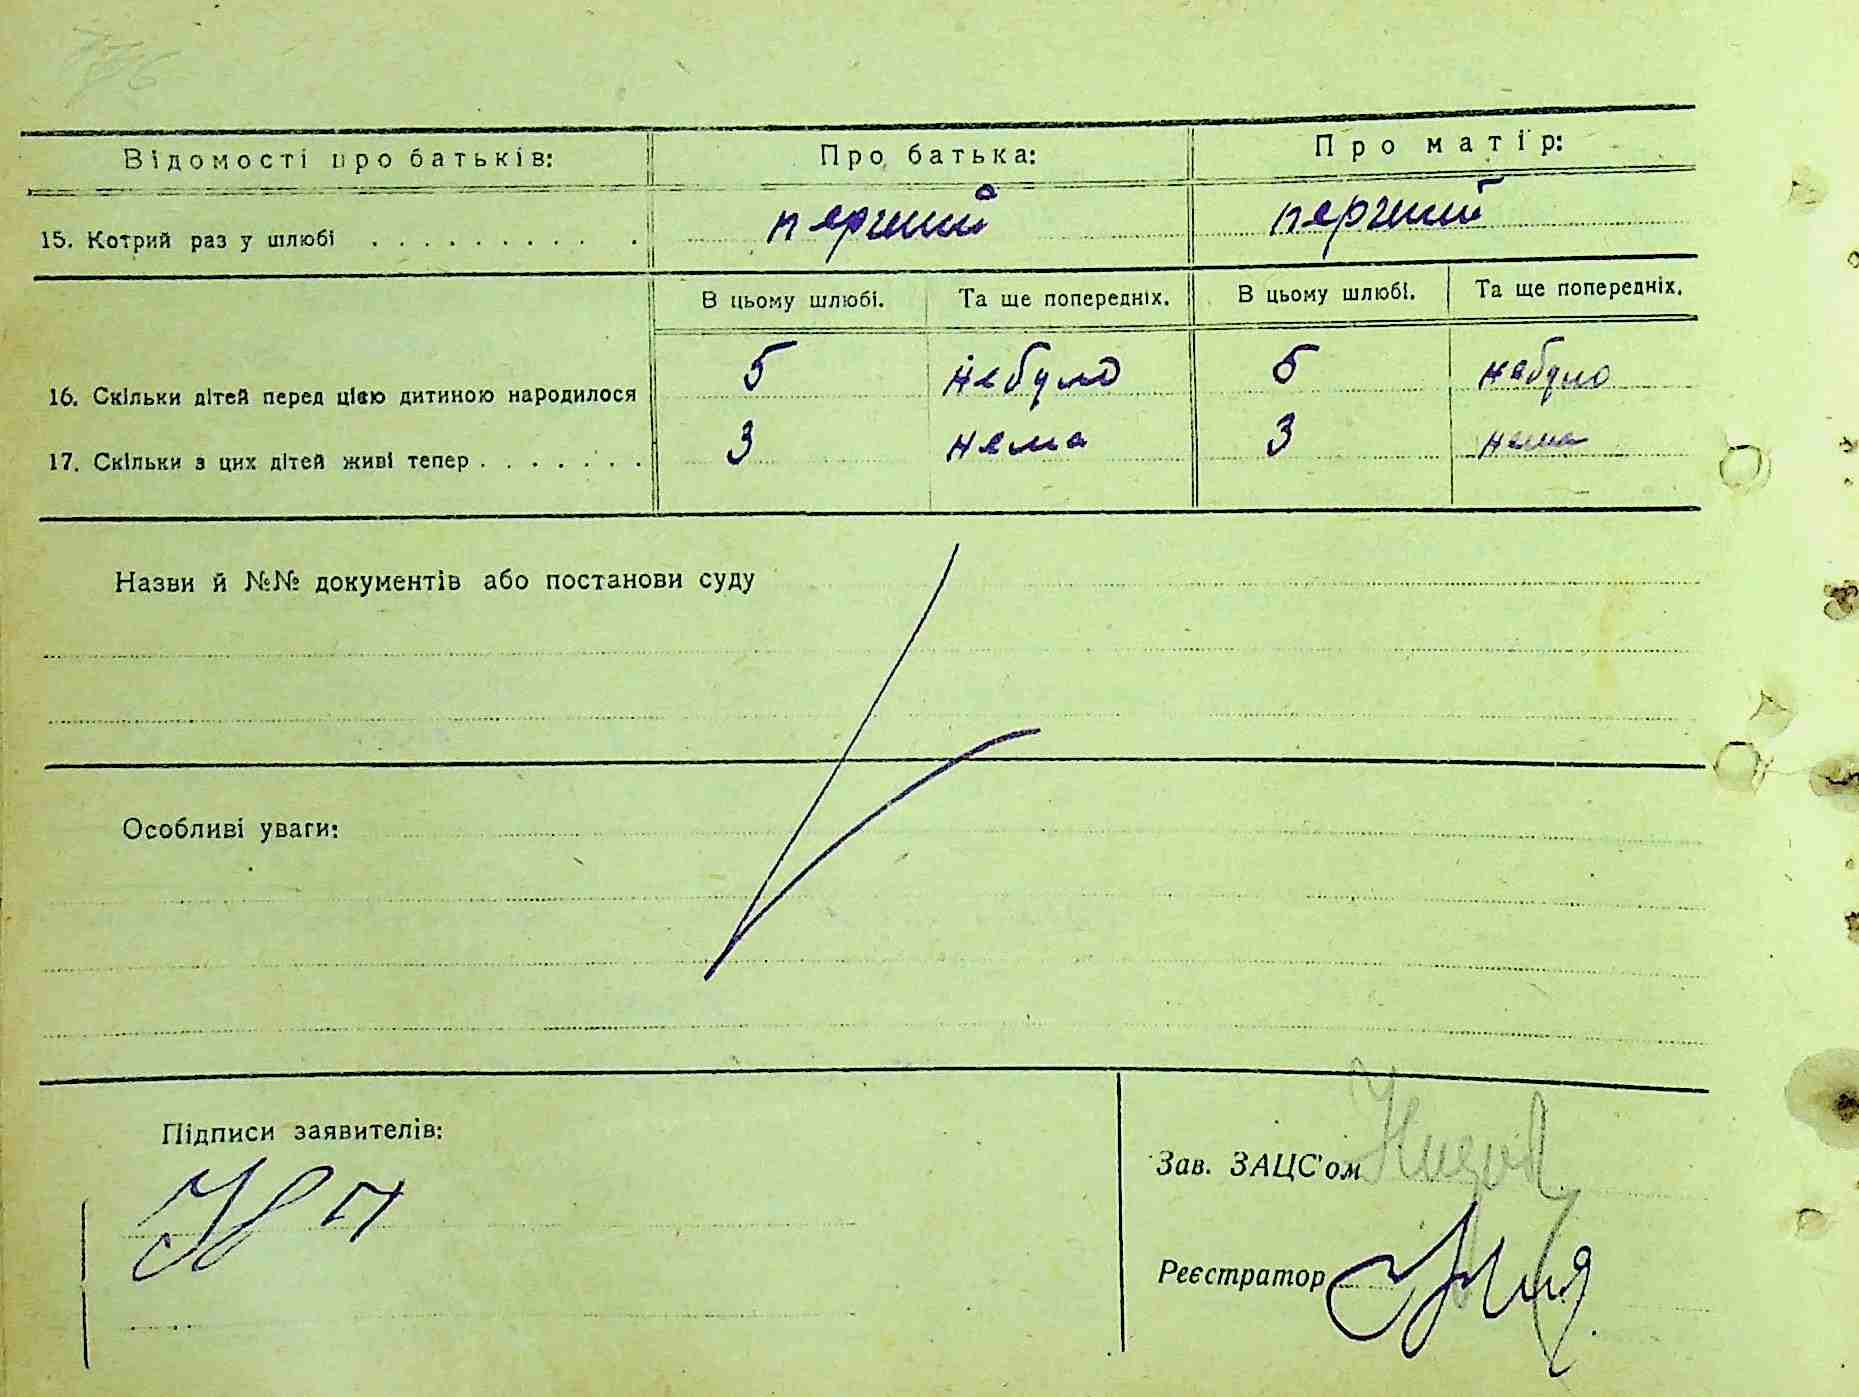 Відомості про батьків: Про батька: Про матір:
15. Котрий раз у шлюбі . . . . . . . . . . перший перший
В цьому шлюбі. Та ще попередніх. В цьому шлюбі. Та ще попередніх.
16. Скільки дітей перед цією дитиною народилося 5 небуло 5 небуло
17. Скільки з цих дітей живі тепер . . . . . . . 3 нема 3 нема
Назви й №№ документів або постанови суду
Особливі уваги:
Підписи заявителів:
Зав. ЗАЦС'ом
Реєстратор